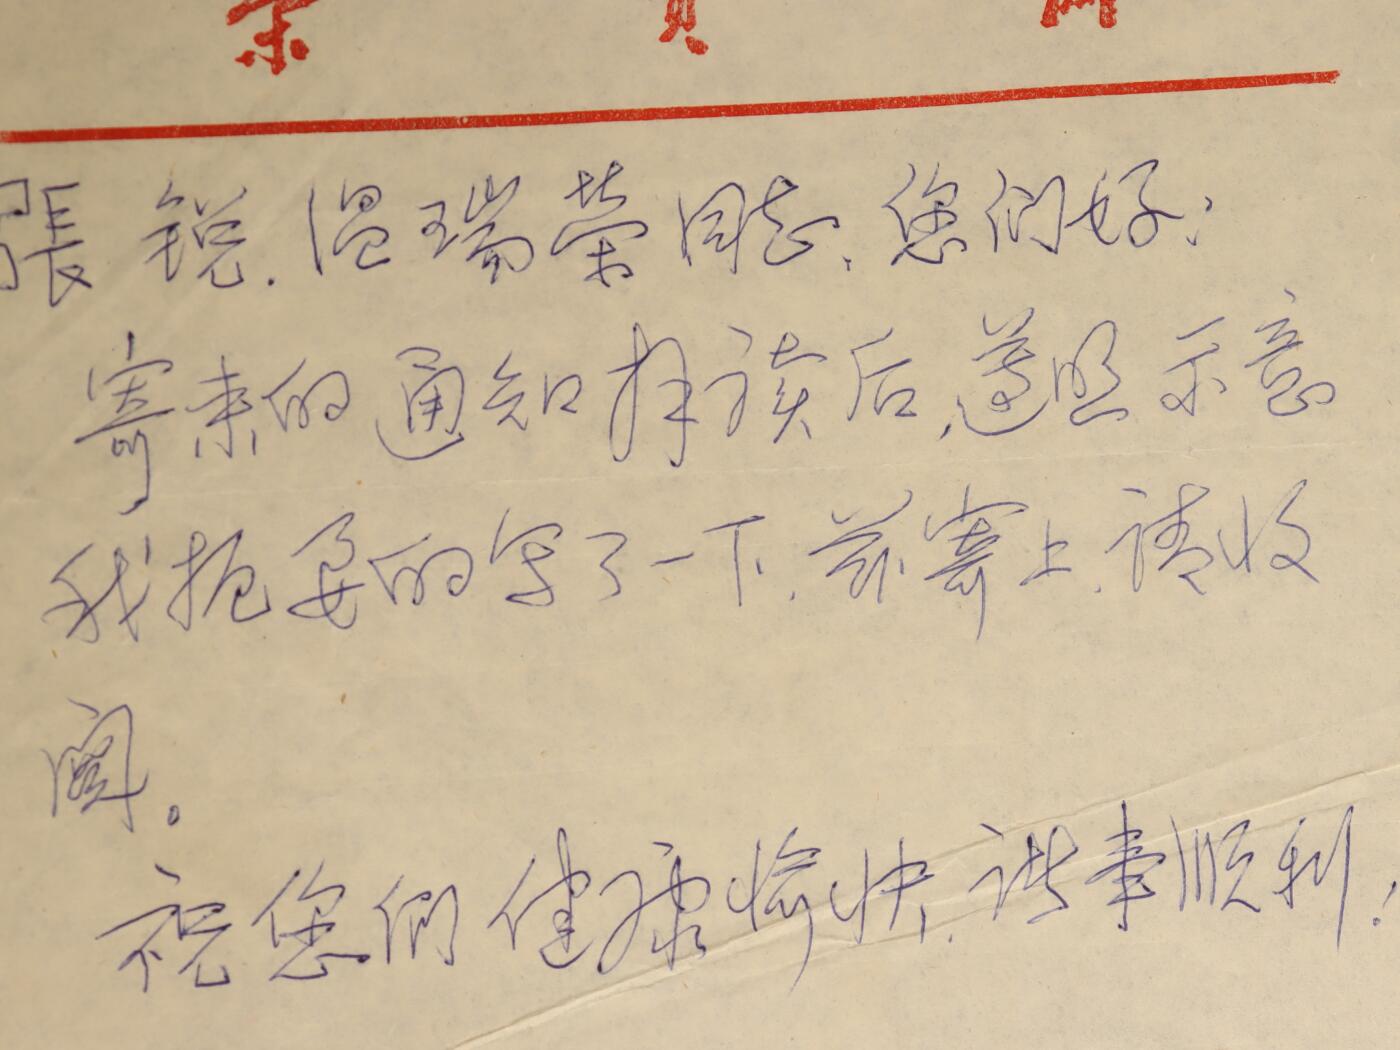 張锐.温瑞荣同志、您們好：
寄来的通知拜读后,遵照示意
我扼要的写了一下.兹寄上.请收
阅。
祝您們健康愉快.诸事顺利！